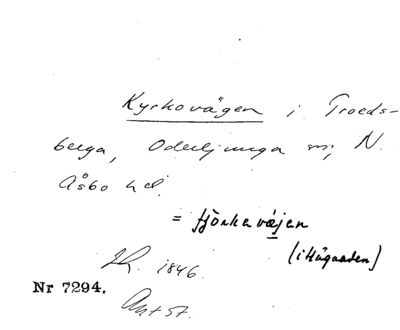 Kyrkovägen i Troeds-
berga, Oderljunga sn, N.
Åsbo hd.
= fjörkavæjen
(i Hägnaden)
1846.
Nr 7294.
Ant 57.